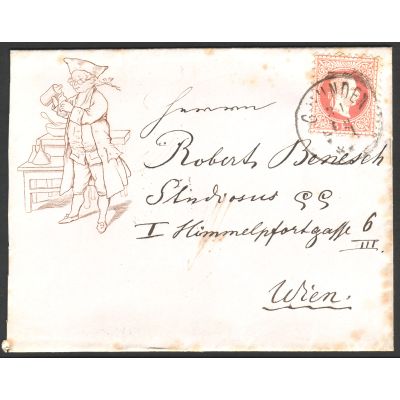 GMUNDEN
Herrn
Robert Benesch
Studiosus
I Himmelpfortgasse 6
III.
Wien.